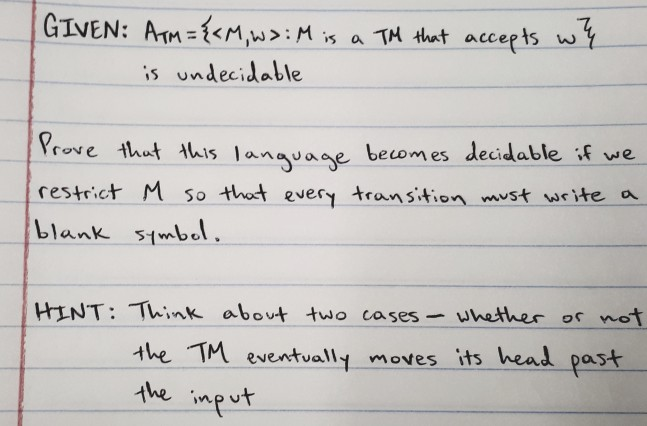 GIVEN: ATM = {<M,w>: M is a TM that accepts w}
is undecidable
Prove that this language becomes decidable if we
restrict M so that every transition must write a
blank symbol.
HINT: Think about two cases – whether or not
the TM eventually moves its head past
the input